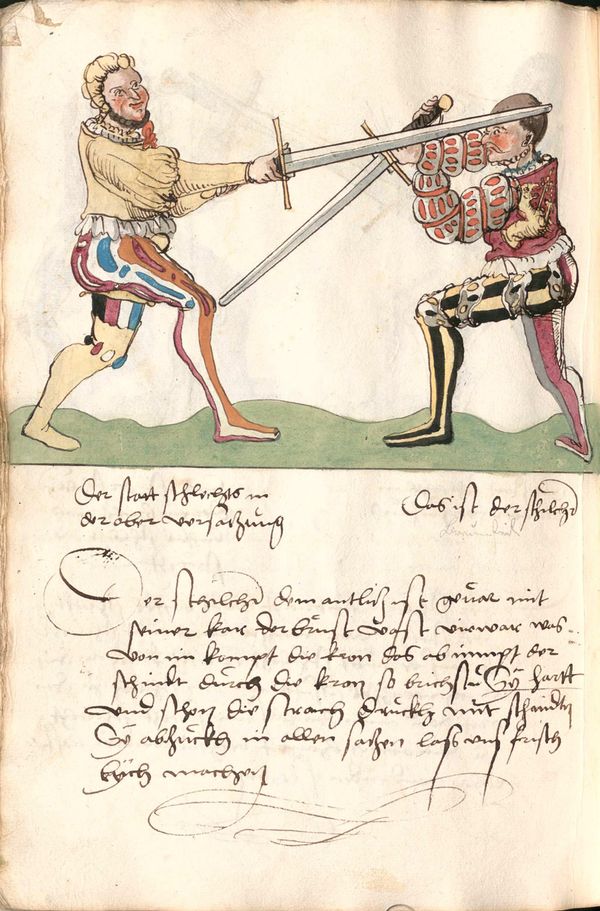 Der statt schlechts in
der ober versatzung
Das ist der schilchr
Er schilchr dem antlitz ist gevar mit
seiner kar der brust vast virwar was
von im kompt die kron das ab nimpt der
schnit durch die kron so brichstu Sy hartt
und schon die straich druckh mit schnidtn
Sy abzuckh in allen sachen lass uns frisch
bÿch machen